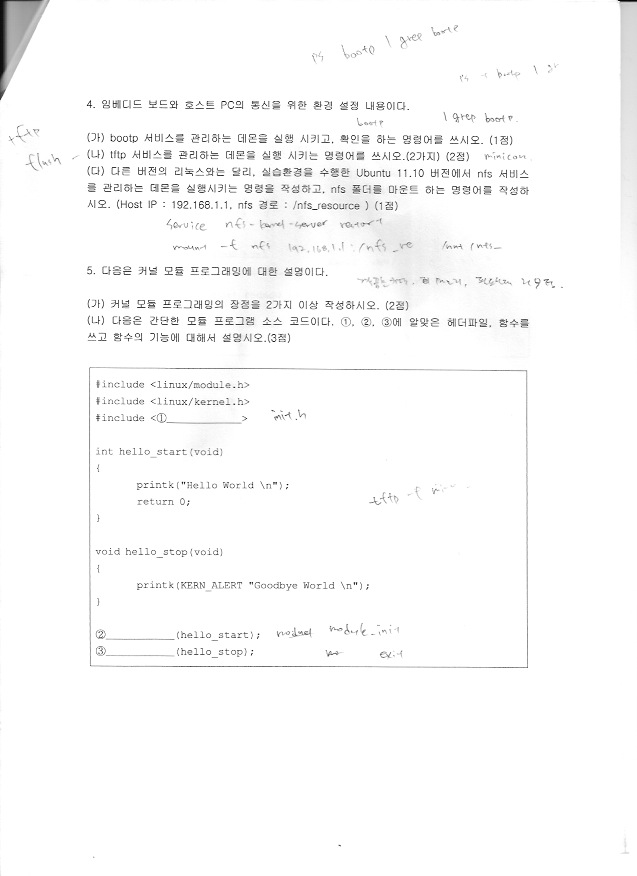 bootp | grep
bootp |
4. 임베디드 보드와 호스트 PC의 통신을 위한 환경 설정 내용이다.
bootp | grep bootp.
tftp
flash -
(가) bootp 서비스를 관리하는 데몬을 실행 시키고, 확인을 하는 명령어를 쓰시오. (1점)
(나) tftp 서비스를 관리하는 데몬을 실행 시키는 명령어를 쓰시오.(2가지) (2점) minicom
(다) 다른 버전의 리눅스와는 달리, 실습환경을 수행한 Ubuntu 11.10 버전에서 nfs 서비스
를 관리하는 데몬을 실행시키는 명령을 작성하고, nfs 폴더를 마운트 하는 명령어를 작성하
시오. (Host IP : 192.168.1.1, nfs 경로 : /nfs_resource ) (1점)
service nfs-kernel-server restart
mount -t nfs 192.168.1.1:/nfs_re /mnt/nfs_
5. 다음은 커널 모듈 프로그래밍에 대한 설명이다.
(가) 커널 모듈 프로그래밍의 장점을 2가지 이상 작성하시오. (2점)
(나) 다음은 간단한 모듈 프로그램 소스 코드이다. ①, ②, ③에 알맞은 헤더파일, 함수를
쓰고 함수의 기능에 대해서 설명시오.(3점)
#include <linux/module.h>
#include <linux/kernel.h>
#include <①____________> init.h
int hello_start(void)
{
printk("Hello World \n");
return 0;
}
tftp -f
void hello_stop(void)
{
printk(KERN_ALERT "Goodbye World \n");
}
②___________(hello_start); module_init
③___________(hello_stop); exit